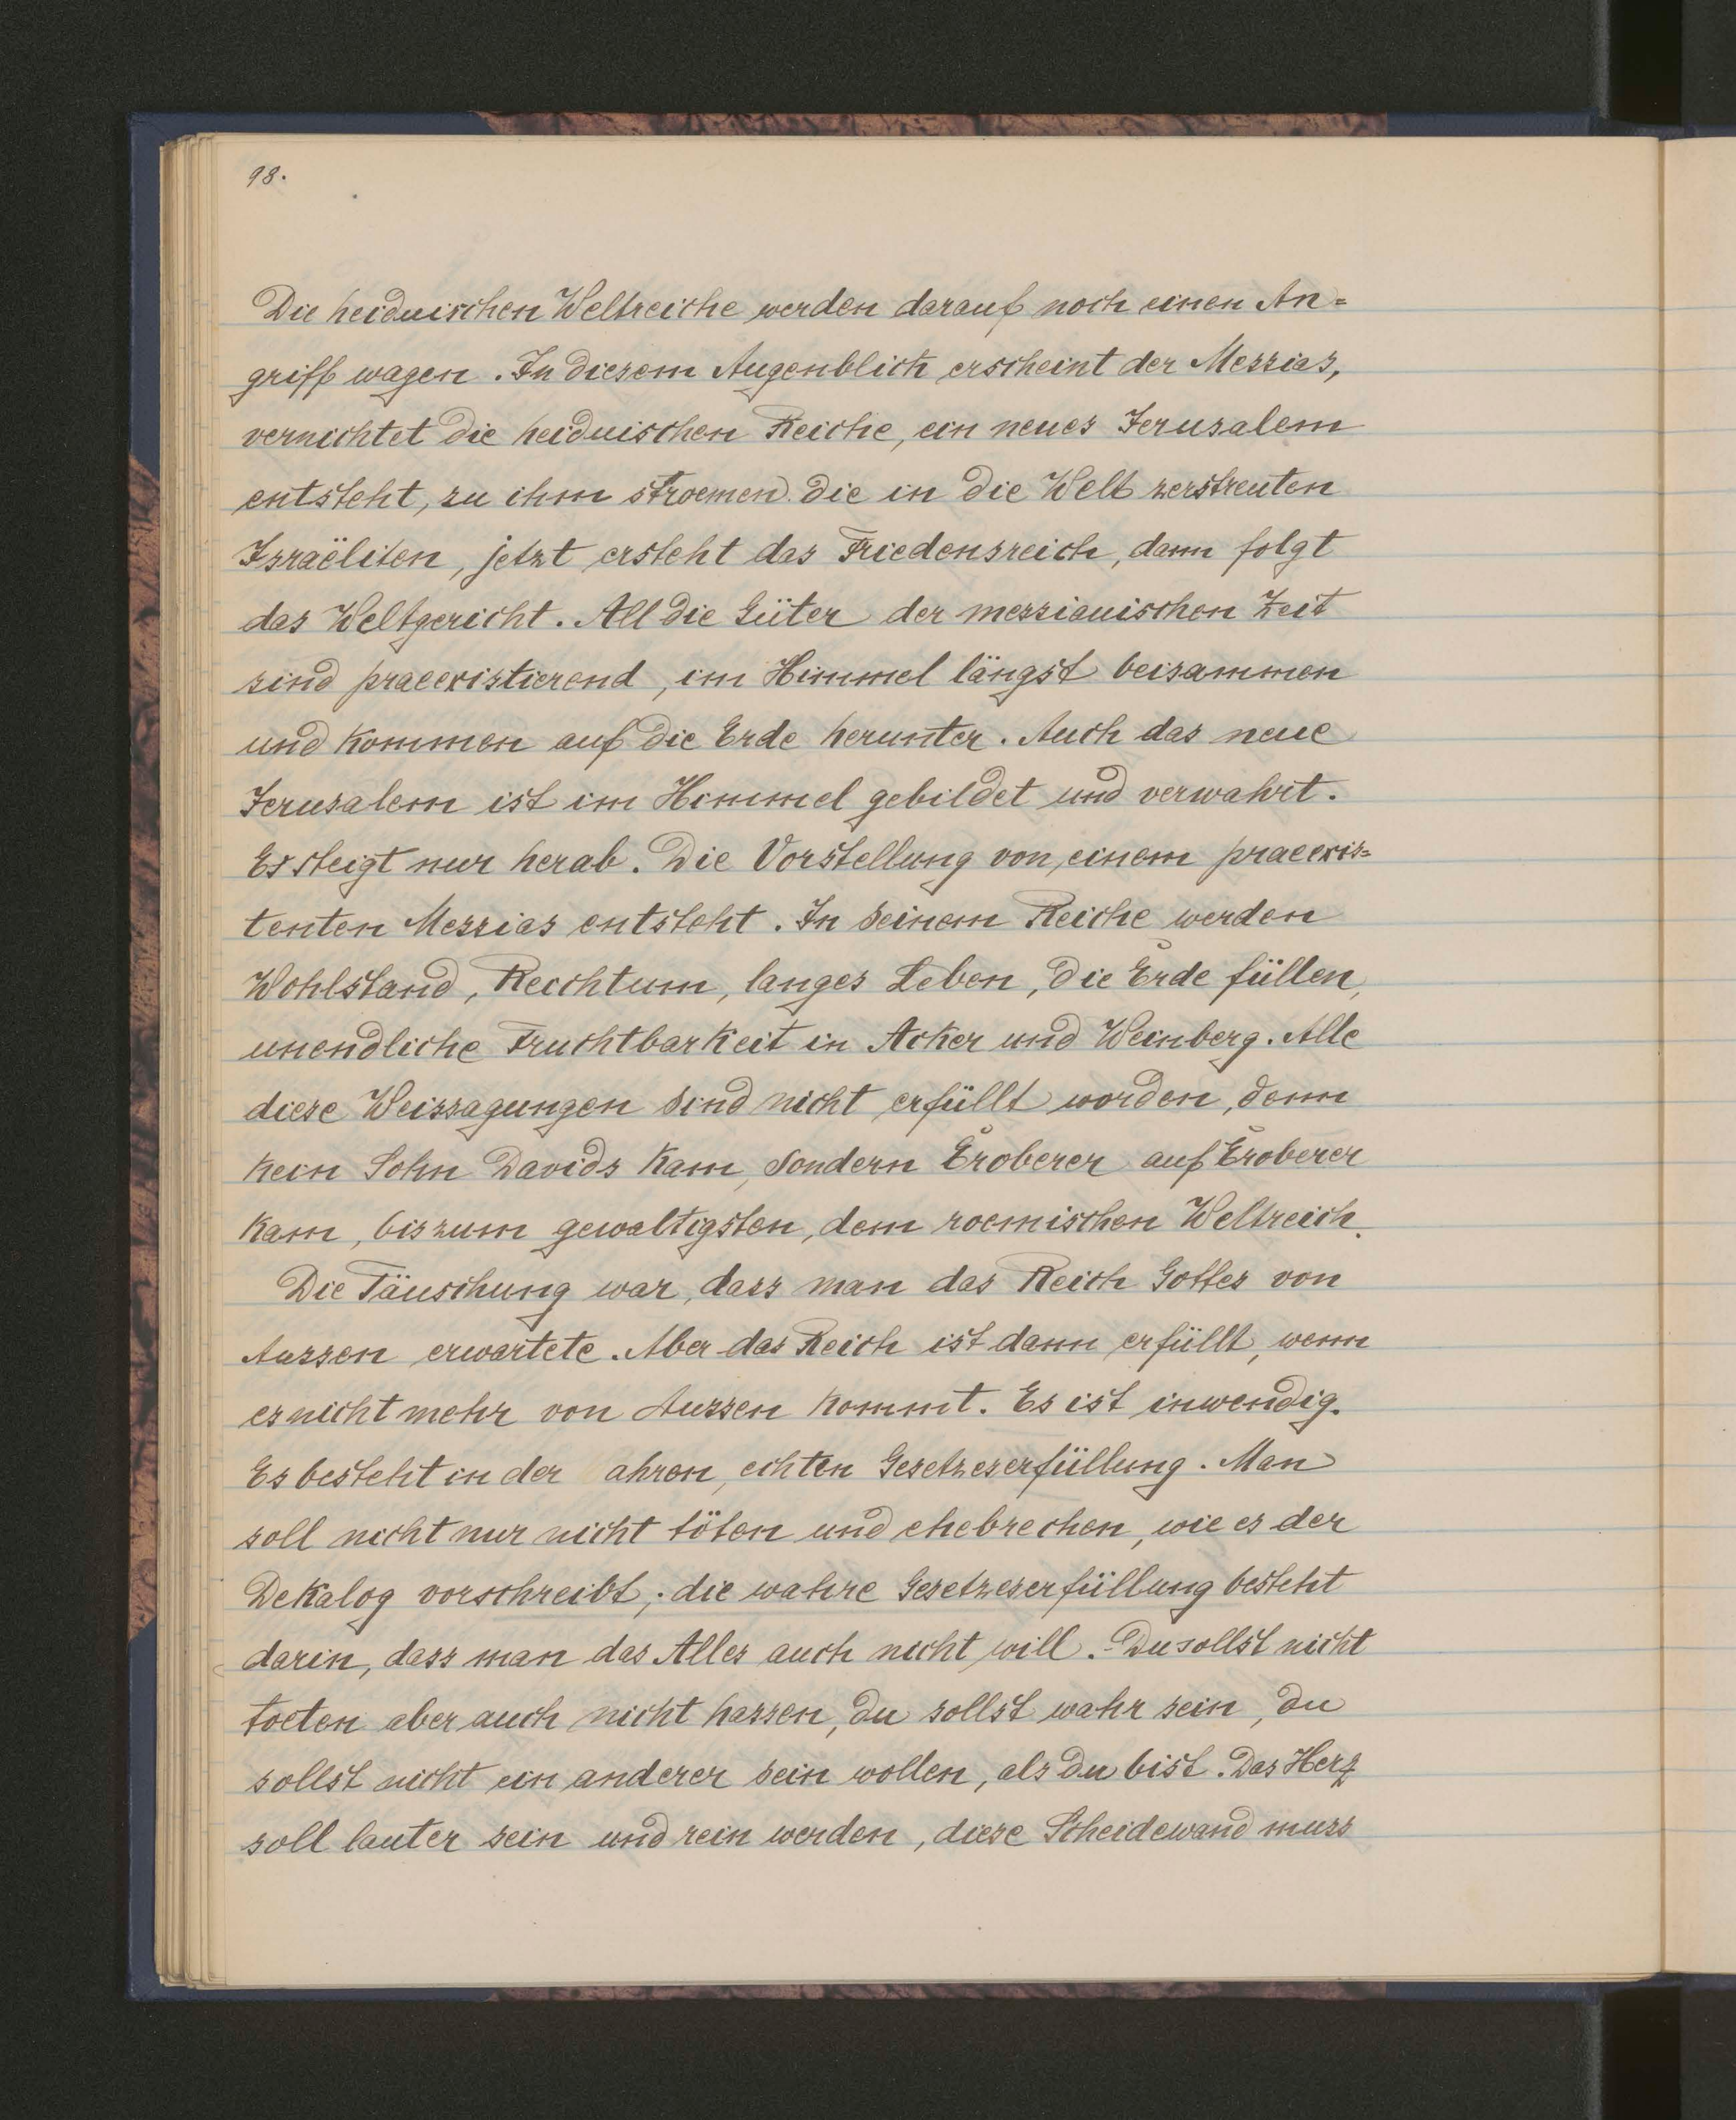 98.
Die heidnischen Weltreiche werden darauf noch einen An=
griff wagen. In diesem Augenblick erscheint der Messias,
vernichtet die heidnischen Reiche, ein neues Jerusalem
entsteht, zu ihm stroemen die in die Welt zerstreuten
Israëliten, jetzt ersteht das Friedensreich, dann folgt
das Weltgericht. All die Güter der messianischen Zeit
sind praeexistierend, im Himmel längst beisammen
und kommen auf die Erde herunter. Auch das neue
Jerusalem ist im Himmel gebildet und verwahrt.
Es steigt nur herab. Die Vorstellung von einem praeexis=
tenten Messias entsteht. In seinem Reiche werden
Wohlstand, Reichtum, langes Leben, die Erde füllen,
unendliche Fruchtbarkeit in Acker und Weinberg. Alle
diese Weissagungen sind nicht erfüllt worden, denn
kein Sohn Davids kam, sondern Eroberer auf Eroberer
kam, bis zum gewaltigsten, dem roemischen Weltreich.
Die Täuschung war, dass man das Reich Gottes von
Aussen erwartete. Aber das Reich ist dann erfüllt, wenn
es nicht mehr von Aussen kommt. Es ist inwendig.
Es besteht in der ahren, echten Gesetzeserfüllung. Man
soll nicht nur nicht töten und ehebrechen, wie es der
Dekalog vorschreibt; die wahre Gesetzeserfüllung besteht
darin, dass man das Alles auch nicht will. Du sollst nicht
toeten aber auch nicht hassen, du sollst wahr sein, du
sollst nicht ein anderer sein wollen, als du bist. Das Herz
soll lauter sein und rein werden, diese Scheidewand muss